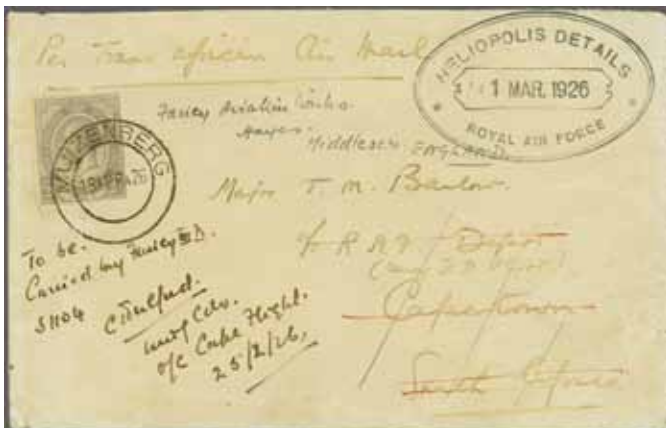 Per Trans african Air Mail
HELIOPOLIS DETAILS
1 MAR. 1926
ROYAL AIR FORCE
Fairey Aviation Works.
Hayes.
Middlesex ENGLAND.
MUIZENBERG
Major T. M. Barlow.
c/o R.A.F. Depot
Capetown
South Africa
To be.
Carried by Fairey III D.
S1104
Wing Cdr.
o/c Cape Flight.
25/2/26.